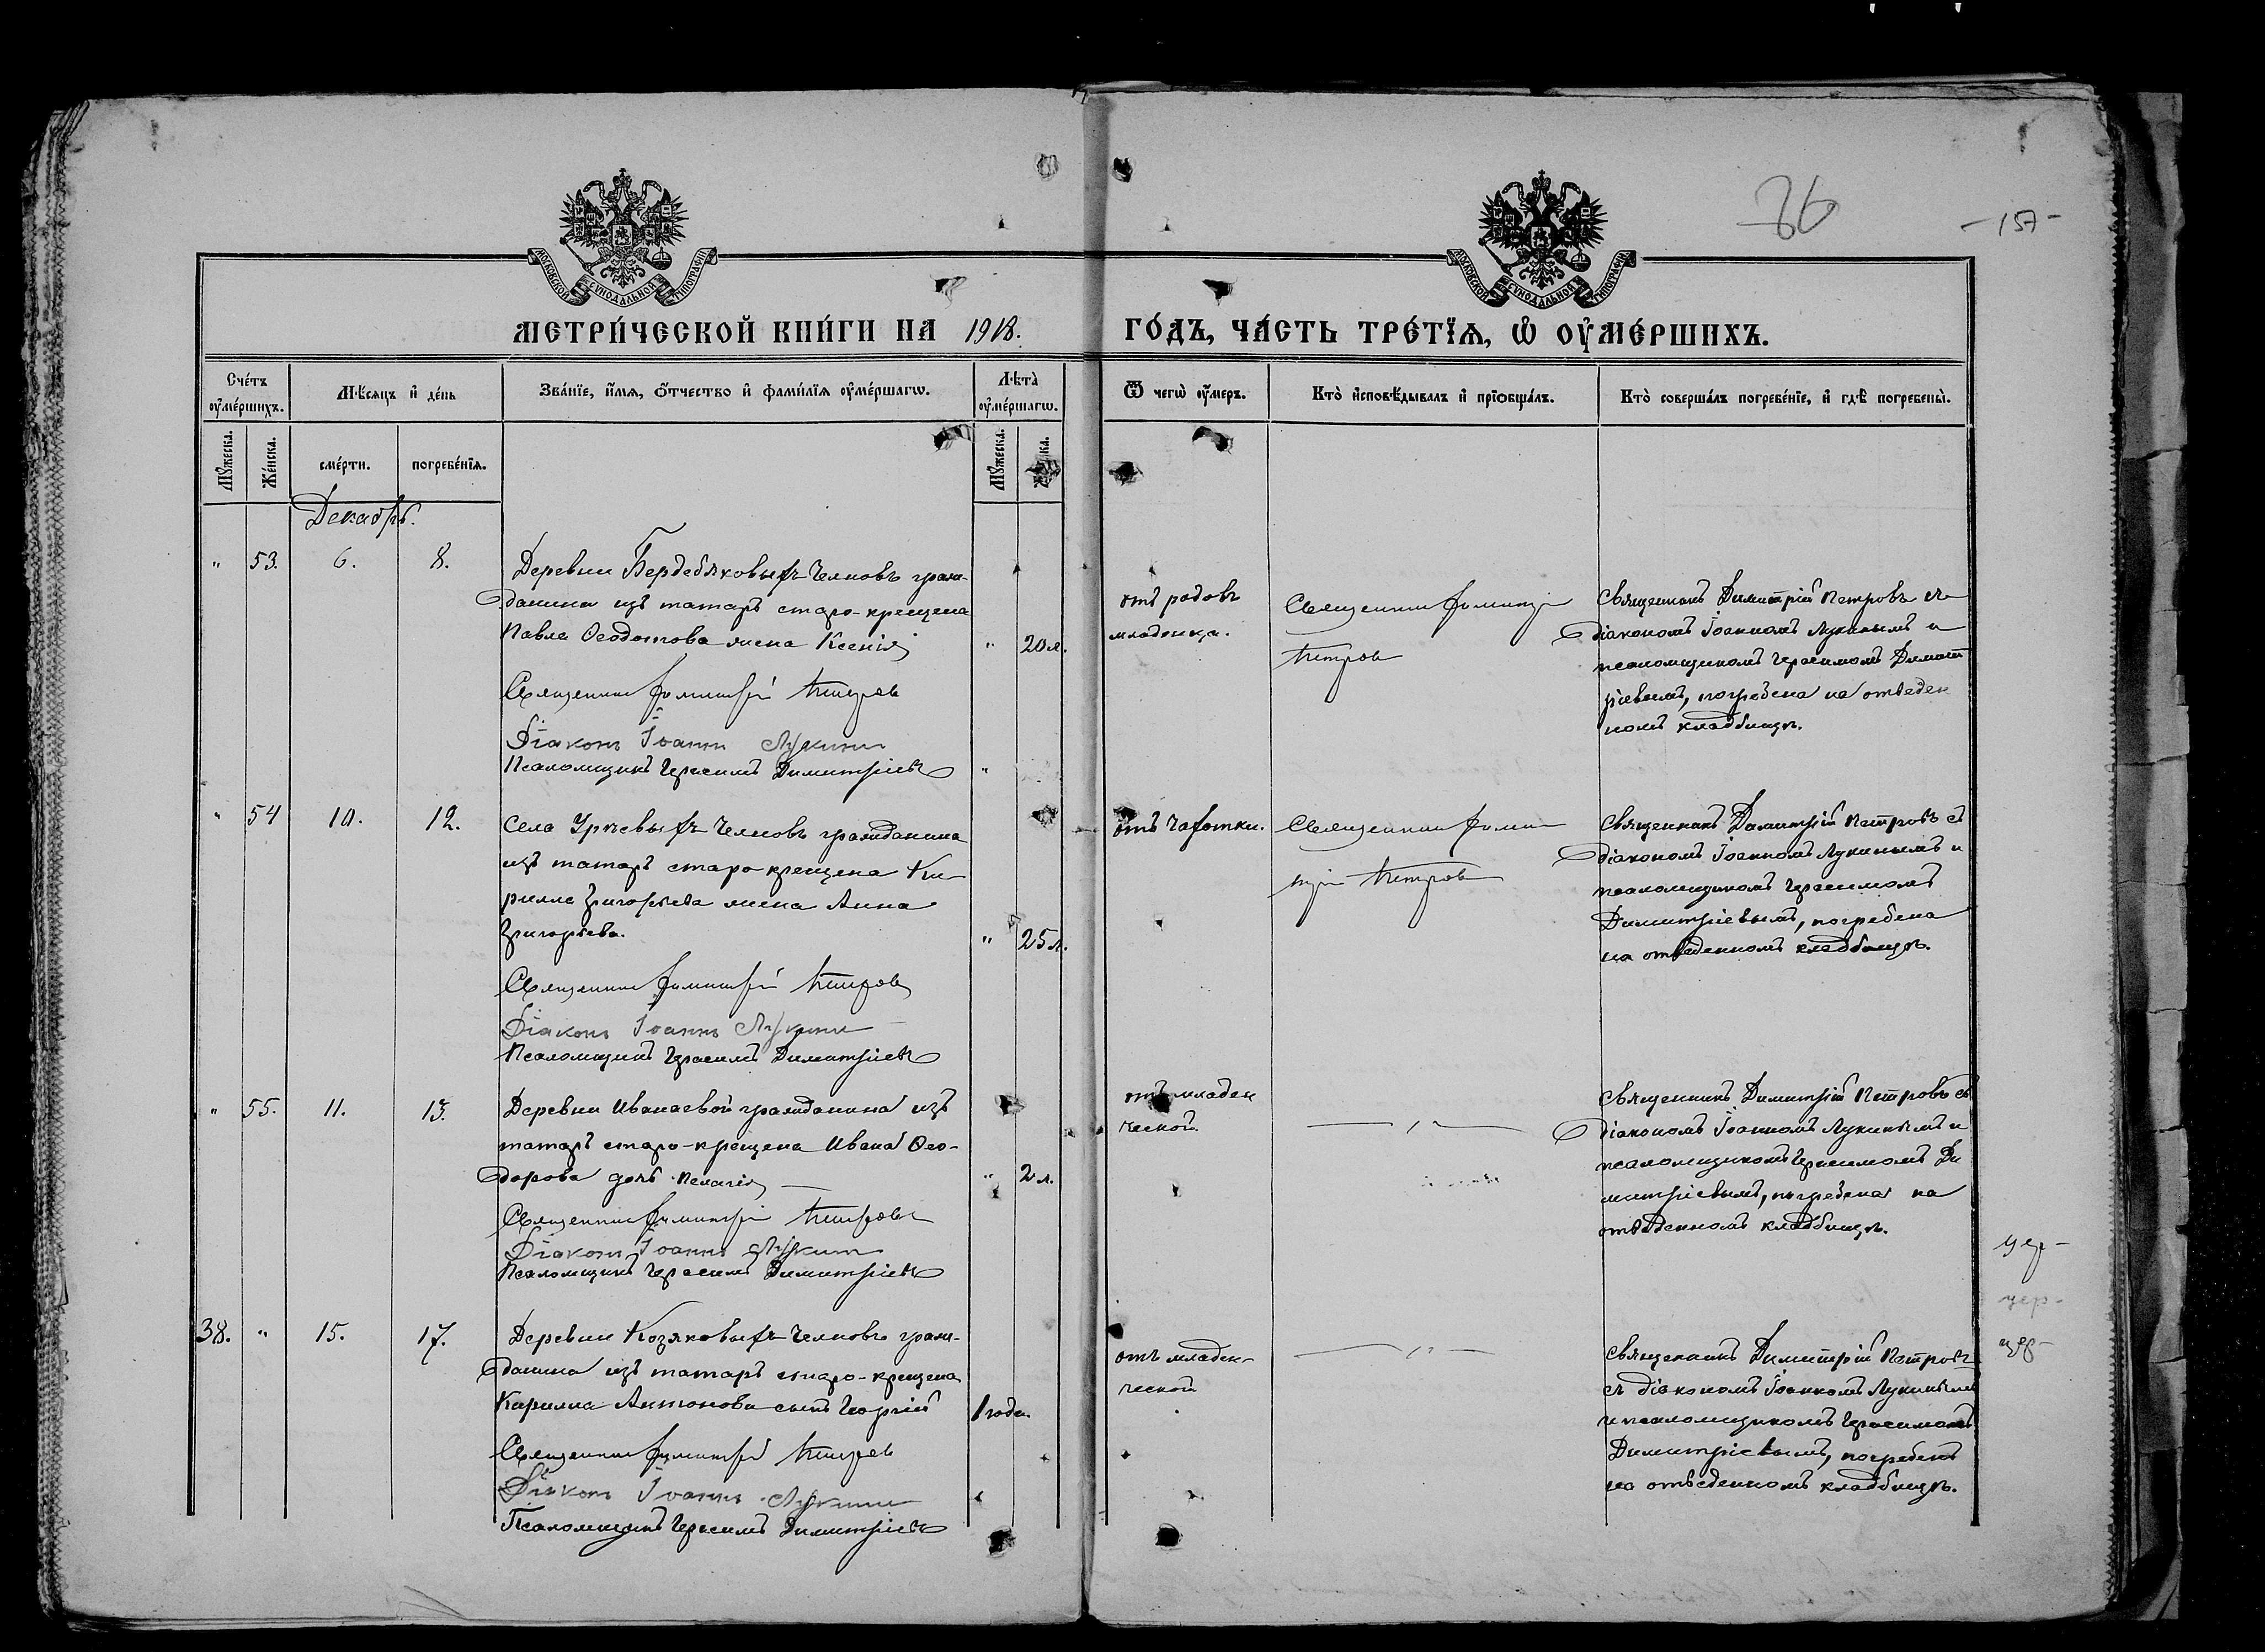 36
- 157 -
МОСКОВСКОЙ СУНОДАЛЬНОЙ ТИПОГРАФІИ
МОСКОВСКОЙ СУНОДАЛЬНОЙ ТИПОГРАФІИ
МЕТРИ́ЧЕСКОЙ КНИ́ГИ НА 1918.
ГО́ДЪ, ЧА́СТЬ ТРЕ́ТЇѦ, Ѡ҆ ОУ҆МЕ́РШИХЪ.
Сче́тъ оу҆ме́ршихъ.
Мѣ́сѧцъ и҆ де́нь
Зва́нїе, и҆́мѧ, ѻ҆́тчество и҆ фами́лїѧ оу҆ме́ршагѡ.
Лѣта̀ оу҆ме́ршагѡ.
Ѿ чегѡ̀ оу҆́меръ.
Кто̀ и҆сповѣ́дывалъ и҆ прїѻбща́лъ.
Кто̀ соверша́лъ погребе́нїе, и҆ гдѣ̀ погребены̀.
Мꙋ́жеска.
Же́нска.
сме́рти.
погребе́нїѧ.
Мꙋ́жеска.
Декабрь.
" 53. 6. 8.
Деревни Бердебяковыхъ Челновъ граж-
данина изъ татаръ старо-крещена
Павла Ѳеодотова жена Ксенія
" 20 л.
Священникъ Димитрій Петровъ
Діаконъ Іоаннъ Лукинъ
Псаломщикъ Герасимъ Димитріевъ
отъ родовъ
младенца.
Священникъ Димитрій
Петровъ
Священникъ Димитрій Петровъ съ
діакономъ Іоанномъ Лукинымъ и
псаломщикомъ Герасимомъ Димит
ріевымъ, погребена на отведен
номъ кладбищѣ.
" 54 10. 12.
Села Урѣевыхъ Челновъ гражданина
изъ татаръ старо крещена Ки
рилла Григорьева жена Анна
Григорьева.
" 25 л.
Священникъ Димитрій Петровъ
Діаконъ Іоаннъ Лукинъ
Псаломщикъ Герасимъ Димитріевъ
отъ чахотки.
Священникъ Дими
трій Петровъ
Священникъ Димитрій Петровъ съ
діакономъ Іоанномъ Лукинымъ и
псаломщикомъ Герасимомъ
Димитріевымъ, погребена
на отведенномъ кладбищѣ.
" 55. 11. 13.
Деревни Иванаевой гражданина изъ
татаръ старо-крещена Ивана Ѳео-
дорова дочь Пелагія
" 2 л.
Священникъ Димитрій Петровъ
Діаконъ Іоаннъ Лукинъ
Псаломщикъ Герасимъ Димитріевъ
отъ младен
ческой.
— " —
Священникъ Димитрій Петровъ съ
діакономъ Іоанномъ Лукинымъ и
псаломщикомъ Герасимомъ Ди
митріевымъ, погребена на
отведенномъ кладбищѣ.
38. " 15. 17.
Деревни Козяковыхъ Челновъ граж-
данина изъ татаръ старо-крещена
Кирилла Антонова сынъ Георгій
1 года.
Священникъ Димитрій Петровъ
Діаконъ Іоаннъ Лукинъ
Псаломщикъ Герасимъ Димитріевъ
отъ младен-
ческой
— " —
Священникъ Димитрій Петровъ
съ діакономъ Іоанномъ Лукинымъ
и псаломщикомъ Герасимомъ
Димитріевымъ, погребенъ
на отведенномъ кладбищѣ.